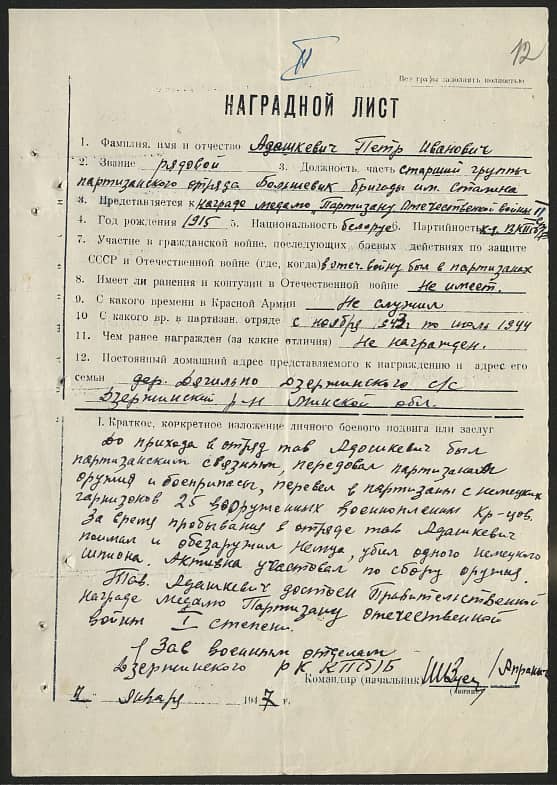 II
12
Все графы заполнять полностью
НАГРАДНОЙ ЛИСТ
1. Фамилия, имя и отчество Адашкевич Петр Иванович
2. Звание рядовой 3. Должность, часть старший группы
партизанского отряда Большевик бригады им. Сталина
3. Представляется к награде медалю „Партизану Отечественной войны II
4. Год рождения 1915 5. Национальность белорус 6. Партийность
7. Участие в гражданской войне, последующих боевых действиях по защите
СССР и Отечественной войне (где, когда) в отеч. войну был в партизанах
8. Имеет ли ранения и контузии в Отечественной войне Не имеет.
9. С какого времени в Красной Армии Не служил
10 С какого вр. в партизан. отряде с ноября 1943 г по июль 1944
11. Чем ранее награжден (за какие отличия) Не награжден.
12. Постоянный домашний адрес представляемого к награждению и адрес его
семьи дер. Дягильно Дзержинского С/С
Дзержинский р-н Минской обл.
I. Краткое, конкретное изложение личного боевого подвига или заслуг
До прихода в отряд тов Адошкевич был
партизанским связным, передовал партизанам
оружия и боеприпасы, перевел в партизаны с немецких
гарнизонов 25 вооруженных военнопленых Кр-цов.
За время пробывания в отряде тов Адашкевич
поймал и обезаружил Немца, убил одного немецкого
шпиона. Активна участовал по сбору оружия.
Тов. Адашкевич достоен Правительственной
награде медалю Партизану отечественной
войны I степени.
Зав военным отделам
Дзержинского РК КП(б)Б
Командир (начальник)
(подпись)
7 января 1947 г.